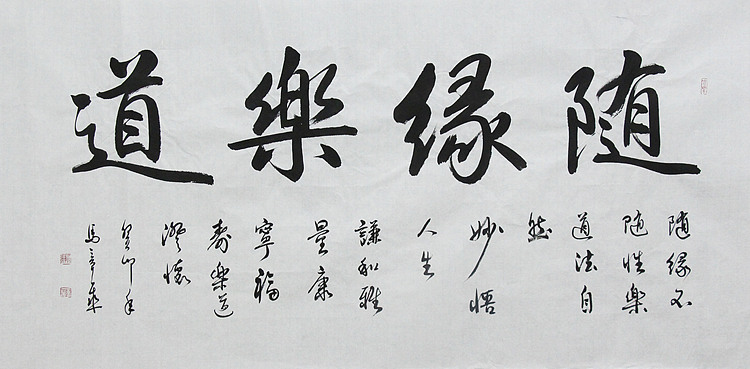 随緣樂道
随緣不
随性樂
道法自
然
妙悟
人生
謙和雅
量康
寧福
壽樂道
澄懷
癸卯年
馬